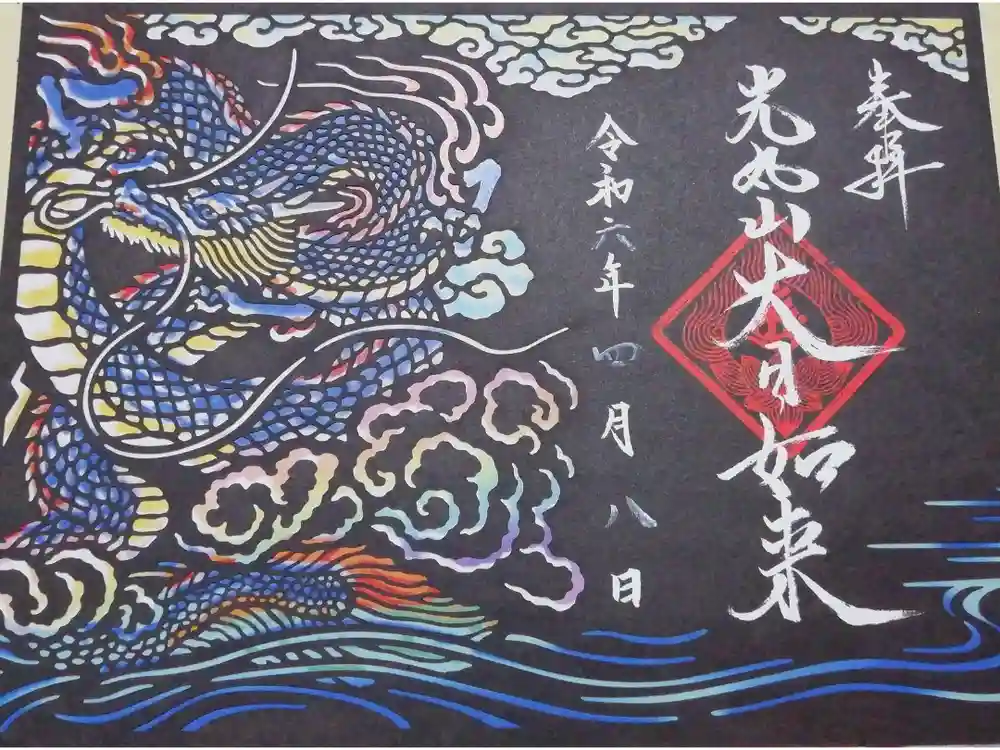 奉拝
光丸山大日如来
令和六年四月八日